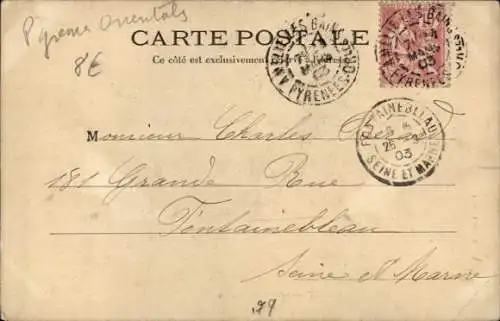 Pyrenees Orientals
8€
CARTE POSTALE
Ce côté est exclusivement
AMÉLIE-LES-BAINS
MARS
03
PYRENEES-OR
AMÉLIE-LES-BAINS
MARS
03
PYRENEES-OR
FONTAINEBLEAU
25
03
SEINE ET MARNE
Monsieur Charles
181 Grande Rue
Fontainebleau
Seine et Marne
79